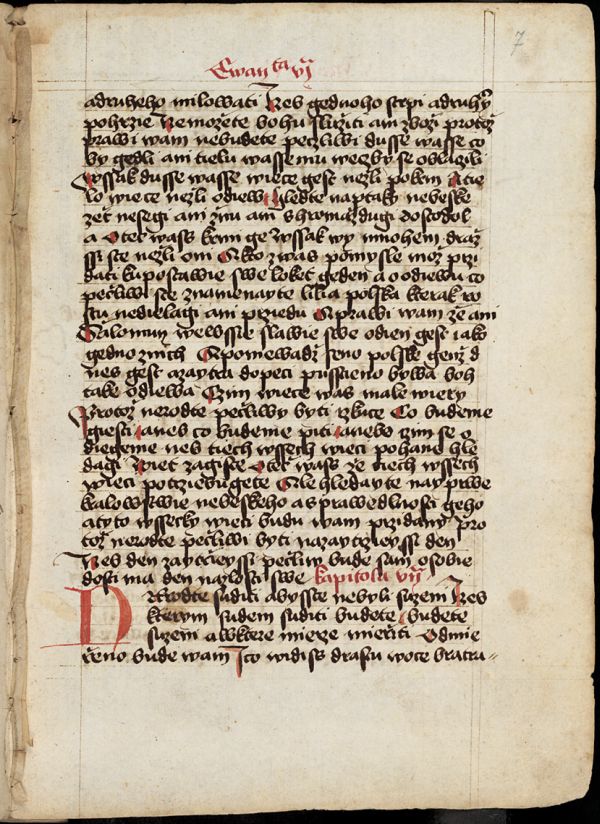 7
Ewan ta vij
adruheho milowati Neb gednoho strpi adruhym
pohrzie Nemozete bohu sluziti ani zbozi protoz
prawi wam nebudete pecziliwi dusse wasse co
by gedli ani tielu wassemu we czby se oblaczili
wssak dusse wasse wiece gest nezli pokrm A tie
lo wiece nezli odiew hledte naptaky nebeske
zet nesegi ani znu ani shromazdugi dostodol
a Otec wass krmi ge wssak wy mnohem draz
ssi ste nezli oni A kto zwas pomysle moz przi
dati ku postawie swe loket geden a o odiewu co
pecliwi ste znamenayte lilia polska kterak ro
stu nedielagi ani przedu A prawi wam ze ani
Salomun wewssie slawie swe odien gest iako
gedno znich A poniewadz seno polske genz d
nes gest azaytra dopeci pusstieno bywa boh
take odiewa Czim wiece was male wiery
Protoz nerodte pecliwy byti rzkuce Co budeme
giesti aneb co budeme piti anebo czim se o
diegeme neb tiech wssech wieci pohane hle
dagi Wiet zagiste Otec wass ze tiech wssech
wieci potrzebugete Ale hledayte nayprwe
kralowstwie nebeskeho a sprawedlnosti geho
a tyto wssecky wieci budu wam przidany Pro
toz nerodte pecliwi byti nazaytrzieyssi den
Neb den zaytrzieyssi pecliw bude sam osobie
dosti ma den nazlosti swe kapitola vij
Nerodte suditi abysste nebyli suzeni Neb
kterym sudem suditi budete budete
suzeni a wktere mierze mierziti Odmie
rzeno bude wam I co widiss drastu woce bratra